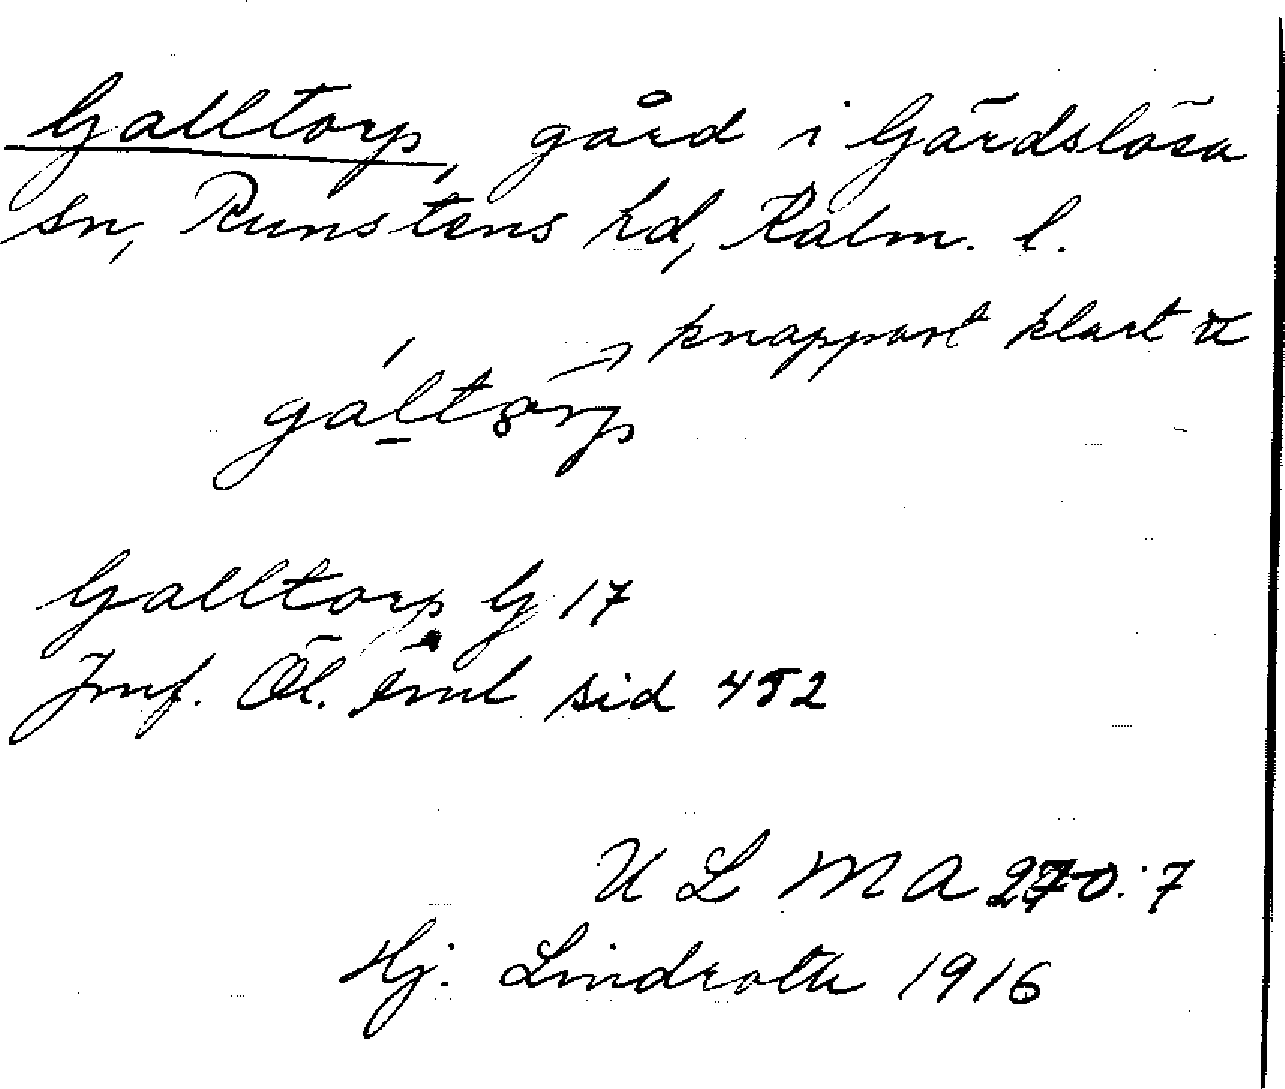 Galltorp, gård i Gärdslösa
sn, Runstens hd, Kalm. l.
knappast klart
Galltorp G 17
Jmf. Öl. saml sid 452
U L M A 270:7
Hj. Lindroth 1916